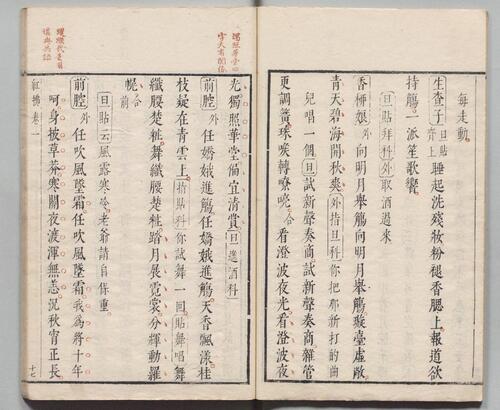 每走動
生查子旦貼齊上睡起洗殘妝粉褪香腮上報道欲
持觴一派笙歌嚮
旦貼拜科外取酒過來
香柳娘外向明月舉觴向明月舉觴駿臺虛敞
青天碧海開秋爽外指旦科你把那新打的曲
兒唱一個旦試新聲奏商試新聲奏商雜管
更調簧珠喉轉嘹喨合看澄波夜光看澄波夜
光獨照華堂偏宜清賞旦進酒科
前腔外任嬌娥進觴任嬌娥進觴天香飄漾桂
枝疑在青雲上指貼科你試舞一回貼舞唱舞
纖腰楚粧舞纖腰楚粧踏月展霓裳分輝動羅
幌合前
旦貼云風露寒冷老爺請自保重
前腔外任吹風墜霜任吹風墜霜我為將十年
呵身披草莽寒關夜渡渾無恙況秋宵正長
紅拂卷一
十七